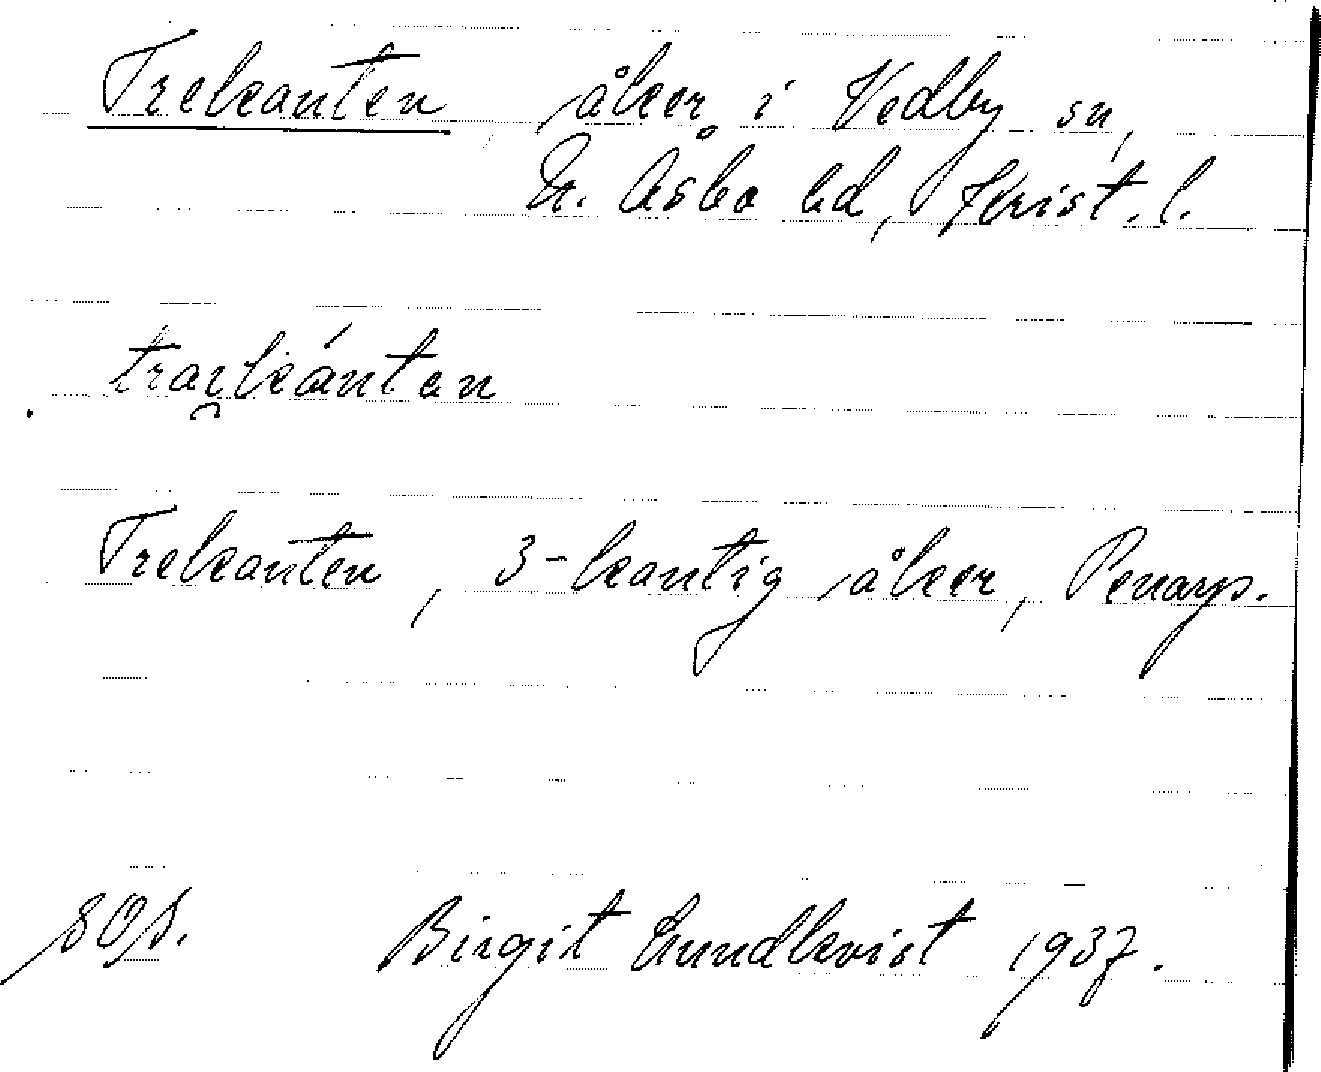 Trekanten, åker i Vedby sn,
N. Åsbo hd, Krist. l.
traɪ̯kántan
Trekanten, 3-kantig åker, Penarp.
SOS. Birgit Lundkvist 1937.